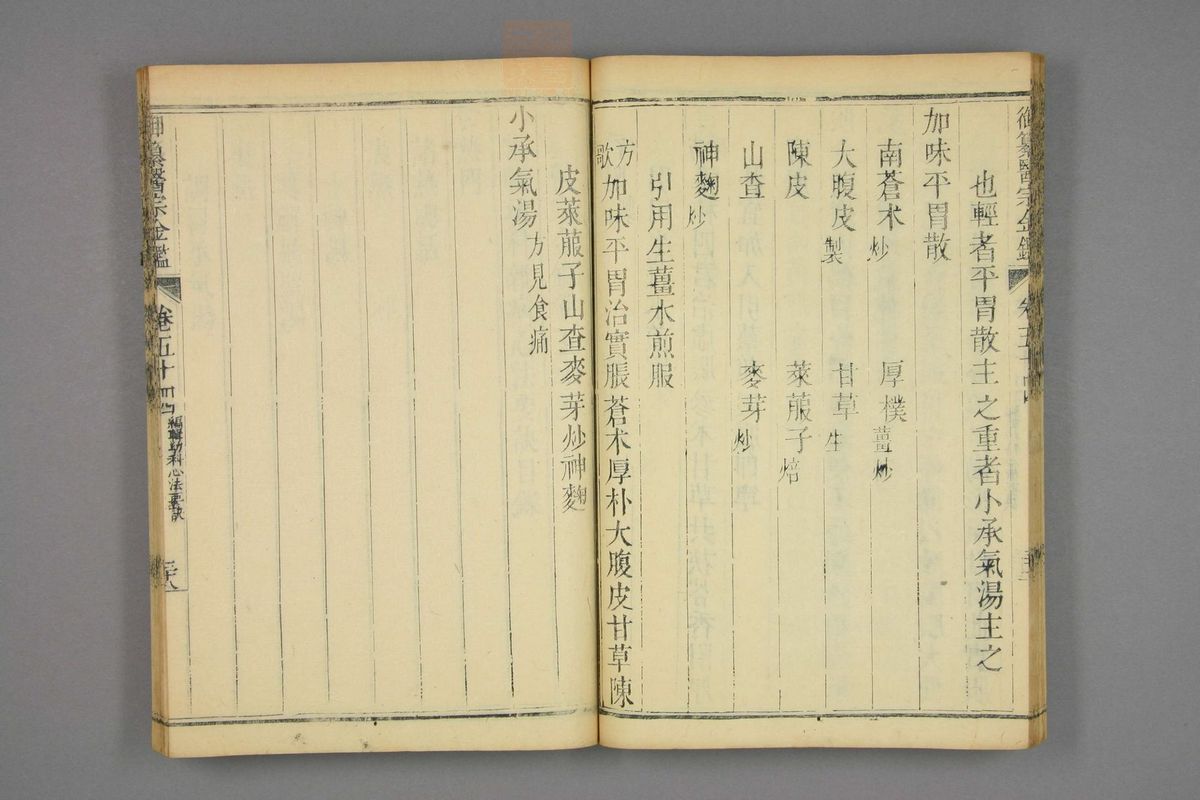 御纂醫宗金鑑 卷五十四
也輕者平胃散主之重者小承氣湯主之
加味平胃散
南蒼朮炒 厚樸薑炒
大腹皮製 甘草生
陳皮 萊菔子焙
山查 麥芽炒
神麯炒
引用生薑水煎服
方歌 加味平胃治實脹蒼朮厚朴大腹皮甘草陳
皮萊菔子山查麥芽炒神麯
小承氣湯方見食痛
御纂醫宗金鑑 卷五十四 編輯幼科心法要訣